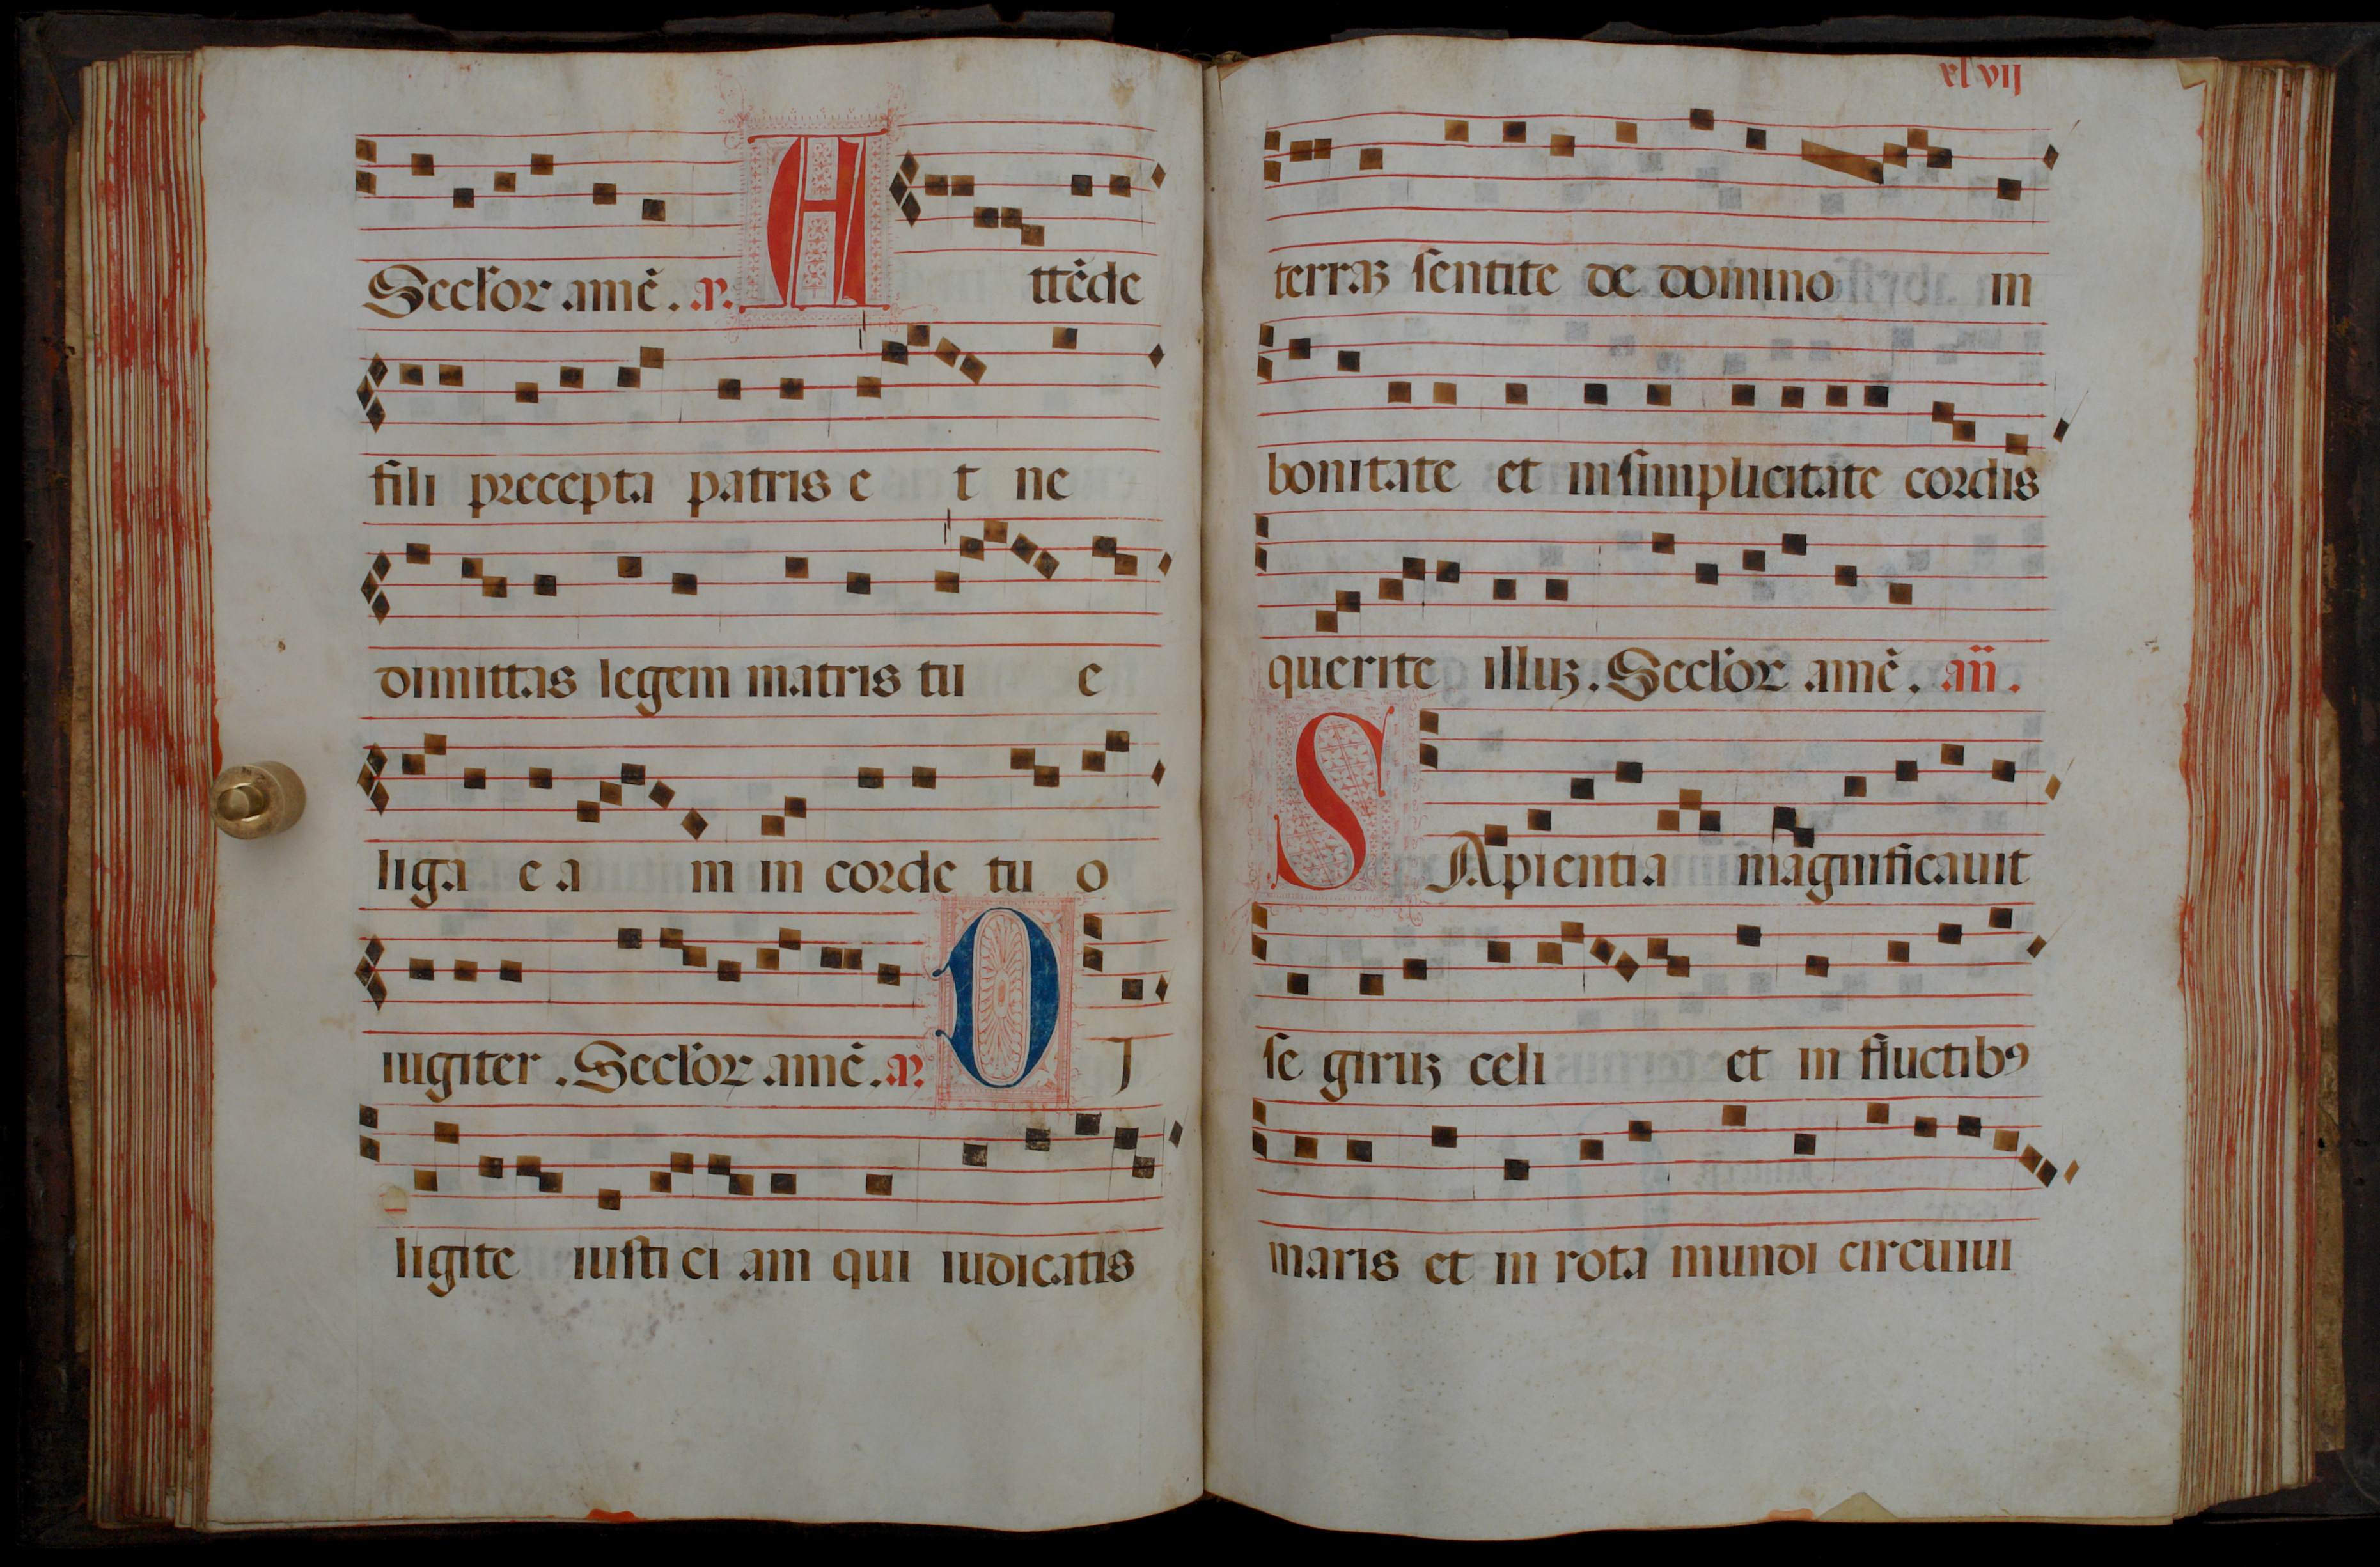 Secl'or amē. a℟. A ttēde
fili precepta patris e t ne
dimittas legem matris tu e
liga e a m in corde tu o
iugiter. Secl'or amē. a℟. D J
ligite iusti ci am qui iudicatis
xlvij
terraꝫ sentite de domino in
bonitate et insimplicitate cordis
querite illuꝫ. Secl'or amē. añ.
SApientia magnificauit
se giruꝫ celi et in fluctibꝰ
maris et in rota mundi circuiui